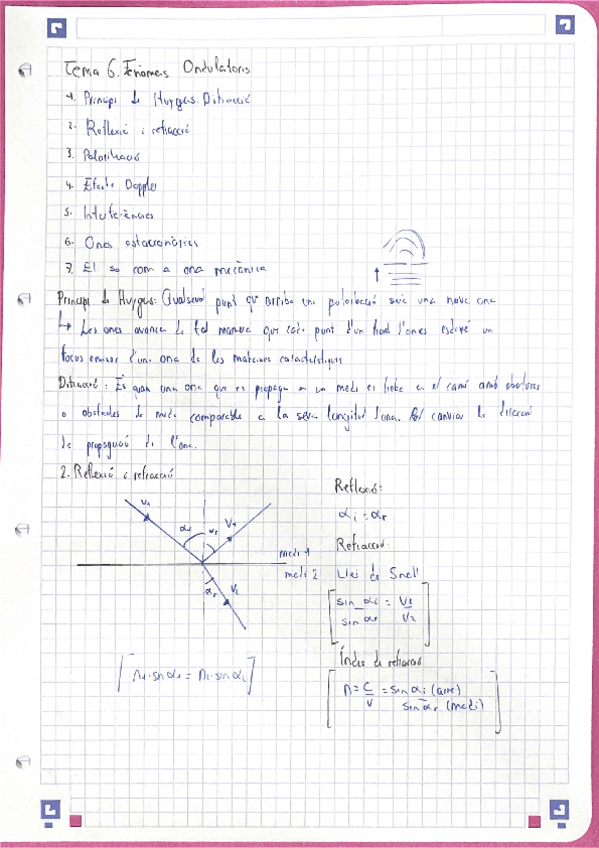 Tema 6. Fenòmens Ondulatoris
1. Principi de Huygens. Difracció
2. Reflexió i refracció
3. Polarització
4. Efecte Doppler
5. Interferències
6. Ones estacionàries
7. El so com a ona mecànica
Principi de Huygens: Qualsevol punt on arriba una pertorbació serà una nova ona
↳ Les ones avancen de tal manera que cada punt d'un front d'ones esdevé un
focus emisor d'una ona de les mateixes característiques
Difracció: És quan una ona que es propaga en un medi es troba en el camí amb obertures
o obstacles de mida comparable a la seva longitud d'ona. canviar la direcció
de propagació de l'ona.
2. Reflexió i refracció
Reflexió:
αi = αr
V1 αi αr V1
medi 1
medi 2
αr V2
Refracció:
Llei de Snell
sin αi / sin αr = V1 / V2
n1·sin α1 = n2·sin α2
Índex de refracció
n = c/v = sin αi (aire) / sin αr (medi)